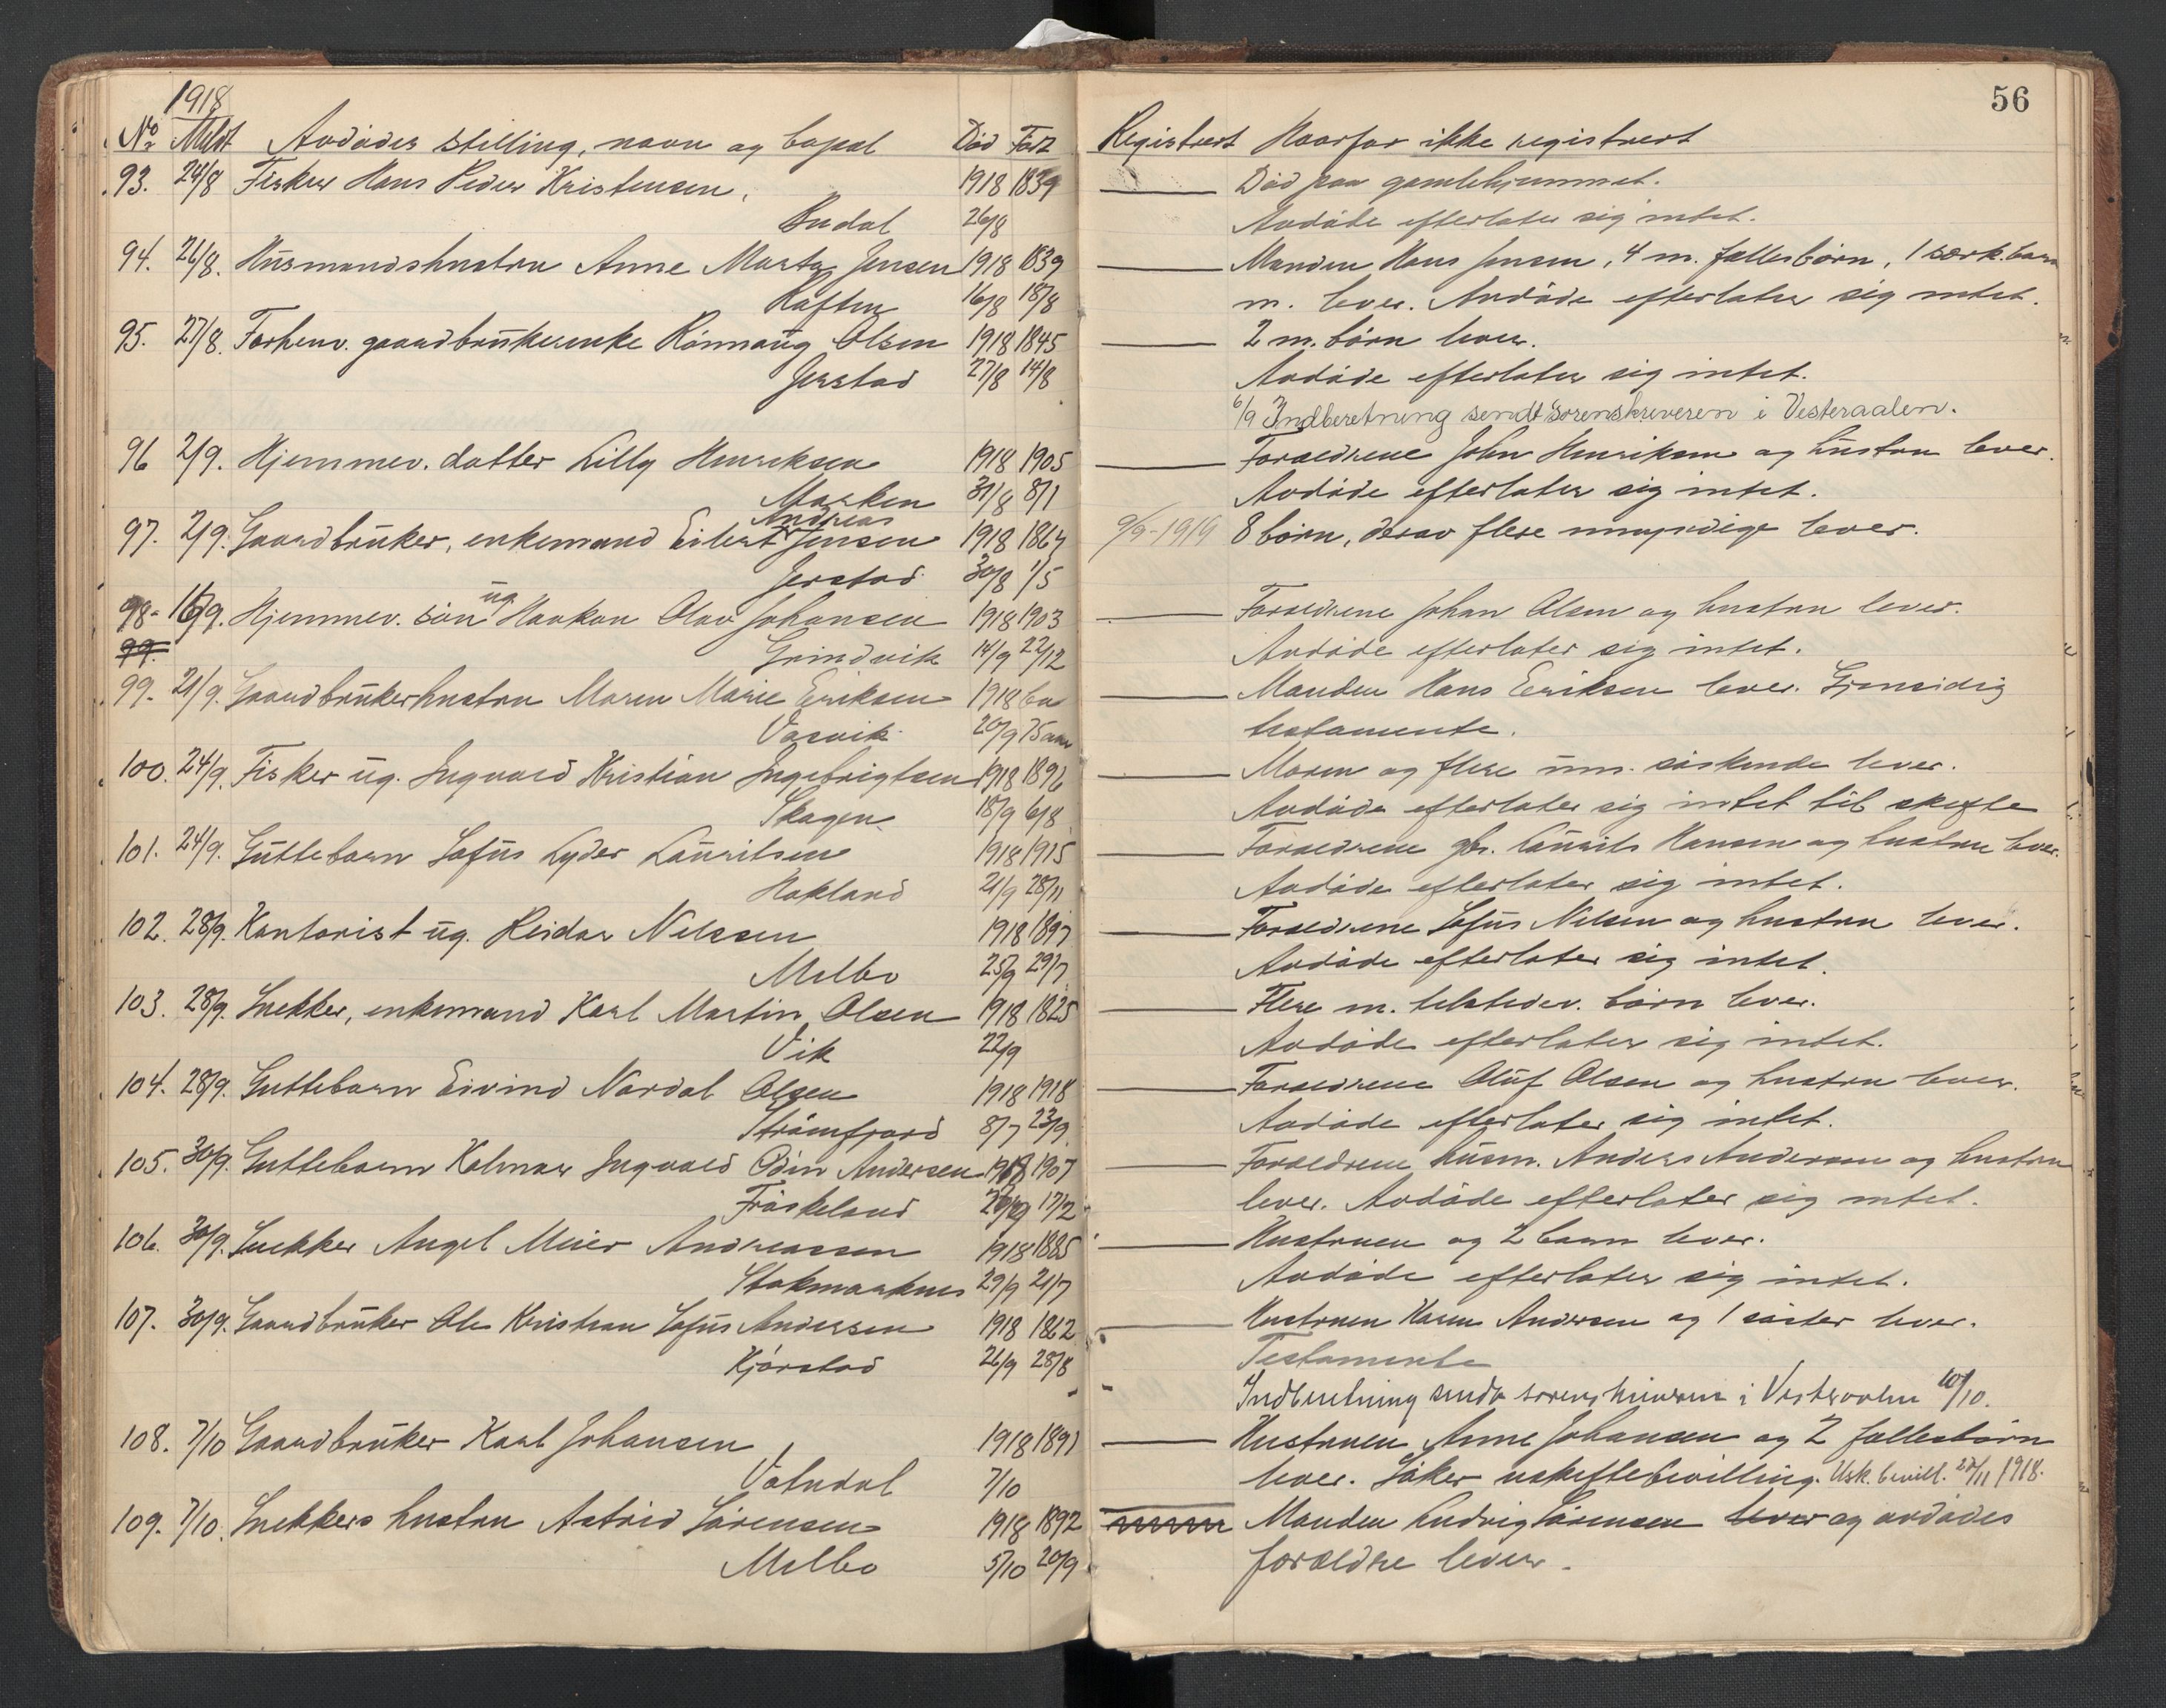 1918
56
No Meldt Avdødes stilling, navn og bopæl Død Født Registrert Hvorfor ikke registrert
93. 24/8 Fisker Hans Peder Kristensen, 1918 1839 Død paa gamlehjemmet.
Budal 26/8 Avdøde efterlater sig intet.
94. 26/8. Husmandshustru Anne Marta Jensen 1918 1839 Manden Hans Jensen, 4 m. fellesbørn, 1 særk.barn
Raften 16/8 18/8 m. lever. Avdøde efterlater sig intet.
95. 27/8. Forhenv. gaardbrukerenke Rønnaug Olsen 1918 1845 2 m. børn lever.
Jerstad 27/8 14/8 Avdøde efterlater sig intet.
6/9 Indberetning sendt sorenskriveren i Vesteraalen.
96 2/9. Hjemmev. datter Lilly Henriksen 1918 1905 Forældrene John Henriksen og hustru lever.
Marken 31/8 8/1 Avdøde efterlater sig intet.
97. 2/9. Gaardbruker, enkemand Eilert Andreas Jensen 1918 1864 9/9-1919 8 børn, derav flere umyndige lever.
Jerstad 30/8 1/5
98- 16/9. Hjemmev. søn ug. Haakon Olav Johansen 1918 1903 Forældrene Johan Olsen og hustru lever.
99. Grindvik 14/9 22/12 Avdøde efterlater sig intet.
99. 21/9. Gaardbrukerhustru Maren Marie Eriksen 1918 ca Manden Hans Eriksen lever. Gjensidig
Vasvik 20/9 75 aar testamente.
100. 24/9. Fisker ug. Ingvald Kristian Ingebrigtsen 1918 1896 Moren og flere um. søskende lever.
Skagen 18/9 6/8 Avdøde efterlater sig intet til skifte
101. 24/9. Guttebarn Lofus Lyder Lauritsen 1918 1915 Forældrene gbr. Laurits Hansen og hustru lever.
Hokland 21/9 28/11 Avdøde efterlater sig intet.
102. 28/9. Kontorist ug. Reidar Nelssen 1918 1897 Forældrene Lofus Nelsen og hustru lever.
Melbo 25/9 29/7 Avdøde efterlater sig intet.
103. 28/9. Snekker, enkemand Karl Martin Olsen 1918 1825 Flere m. tilstedev. børn lever.
Vik 22/9 Avdøde efterlater sig intet.
104. 28/9. Guttebarn Eivind Nordal Olsen 1918 1918 Forældrene Oluf Olsen og hustru lever.
Strømfjord 8/7 23/9. Avdøde efterlater sig intet.
105. 30/9. Guttebarn Kolmar Ingvald Odin Andersen 1918 1907 Forældrene husm. Anders Andersen og hustru
Frøskeland 17/2 lever. Avdøde efterlater sig intet.
106. 30/9. Snekker Angel Meier Andreassen 1918 1885 Hustruen og 2 barn lever.
Stokmarknes 29/9 21/7 Avdøde efterlater sig intet.
107. 30/9. Gaardbruker Ole Kristian Lofus Andersen 1918 1862 Hustruen Karen Andersen og 1 søster lever.
Kjørstad 26/9 28/8 Testamente
Indberetning sendt sorenskriveren i Vesteraalen 10/10.
108. 7/10 Gaardbruker Karl Johansen, 1918 1891 Hustruen Anne Johansen og 2 fellesbørn
Vatndal 7/10 lever. Søker uskiftebevilling. Usk. bevill. 27/11 1918.
109. 7/10. Snekkers hustru Astrid Sørensen 1918 1892 Manden Ludvig Sørensen lever og avdødes
Melbo 5/10 20/9 forældre lever.